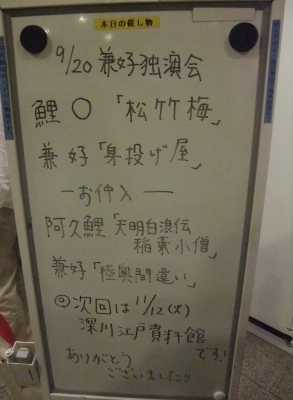 本日の催し物
9/20 兼好独演会
鯉〇「松竹梅」
兼好「身投げ屋」
ーお仲入ー
阿久鯉「天明白浪伝
稲葉小僧」
兼好「陸奥間違い」
◎次回は11/12(火)
深川江戸資料館
でろ!
ありがとう
ございました!!